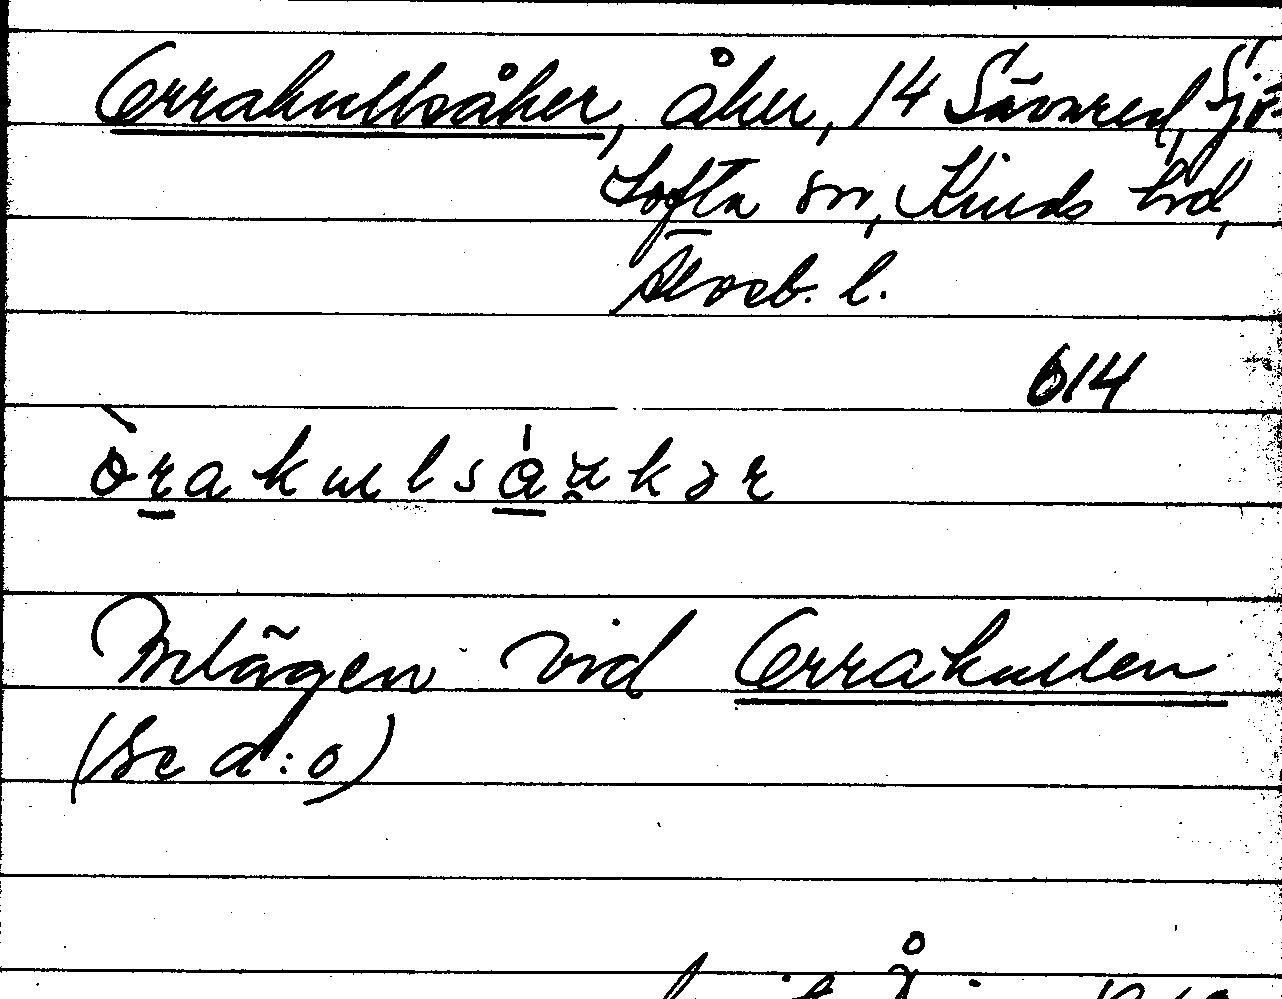 Orrakullsåker, åker, 14 Sävared, Sjö-
tofta sn, Kinds hd,
Älvsb. l.
614
òrakulsáu̯kər
Inlägen vid Orrakullen
(Se d:o)